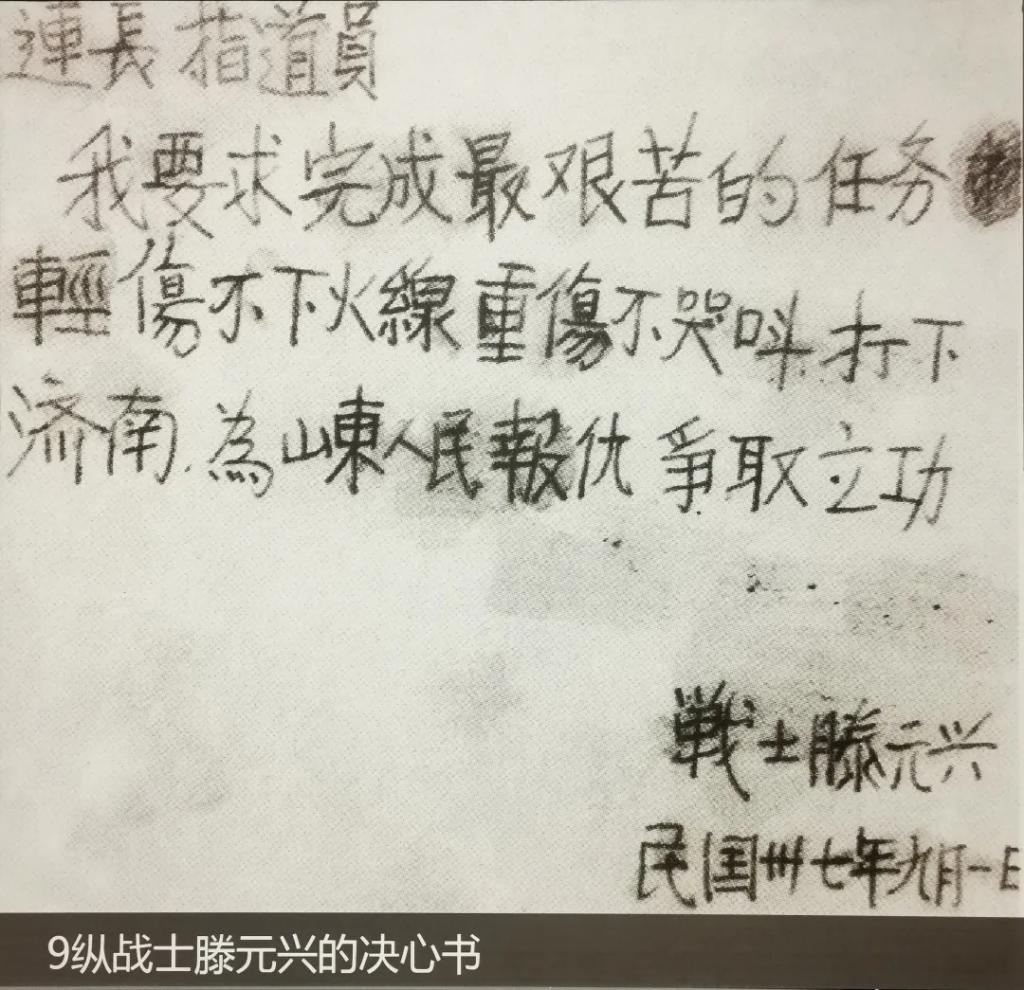 連長 指道員
我要求完成最艰苦的任务
輕傷不下火線重傷不哭呌打下
济南.為山東人民報仇 爭取立功
戰士滕元兴
民国卅七年九月一日
9纵战士滕元兴的决心书